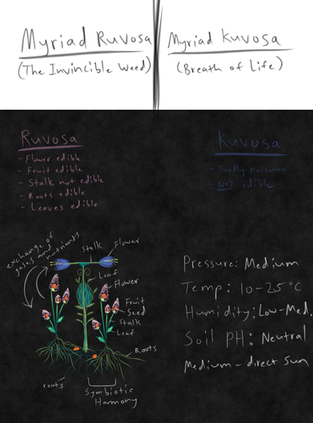 Myriad Ruvosa
(The Invincible Weed)
Myriad Kuvosa
(Breath of Life)
Ruvosa
- Flower edible
- Fruit edible
- Stalk not edible
- Roots edible
- Leaves edible
Kuvosa
- Deadly poisonous
NOT edible
exchange of
gases and nutrients
Stalk
Flower
Leaf
Flower
Fruit
Seed
Stalk
Leaf
Roots
roots
Symbiotic
Harmony
Pressure: Medium
Temp: 10-25°C
Humidity: Low-Med.
Soil PH: Neutral
Medium - direct Sun